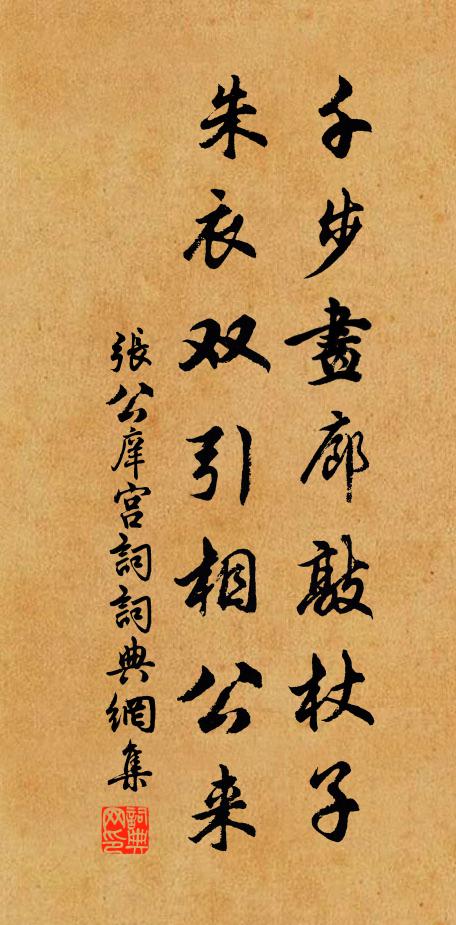 千步畫廊敲杖子
朱衣双引相公来
張公庠宫詞詞典網集
詞典网印